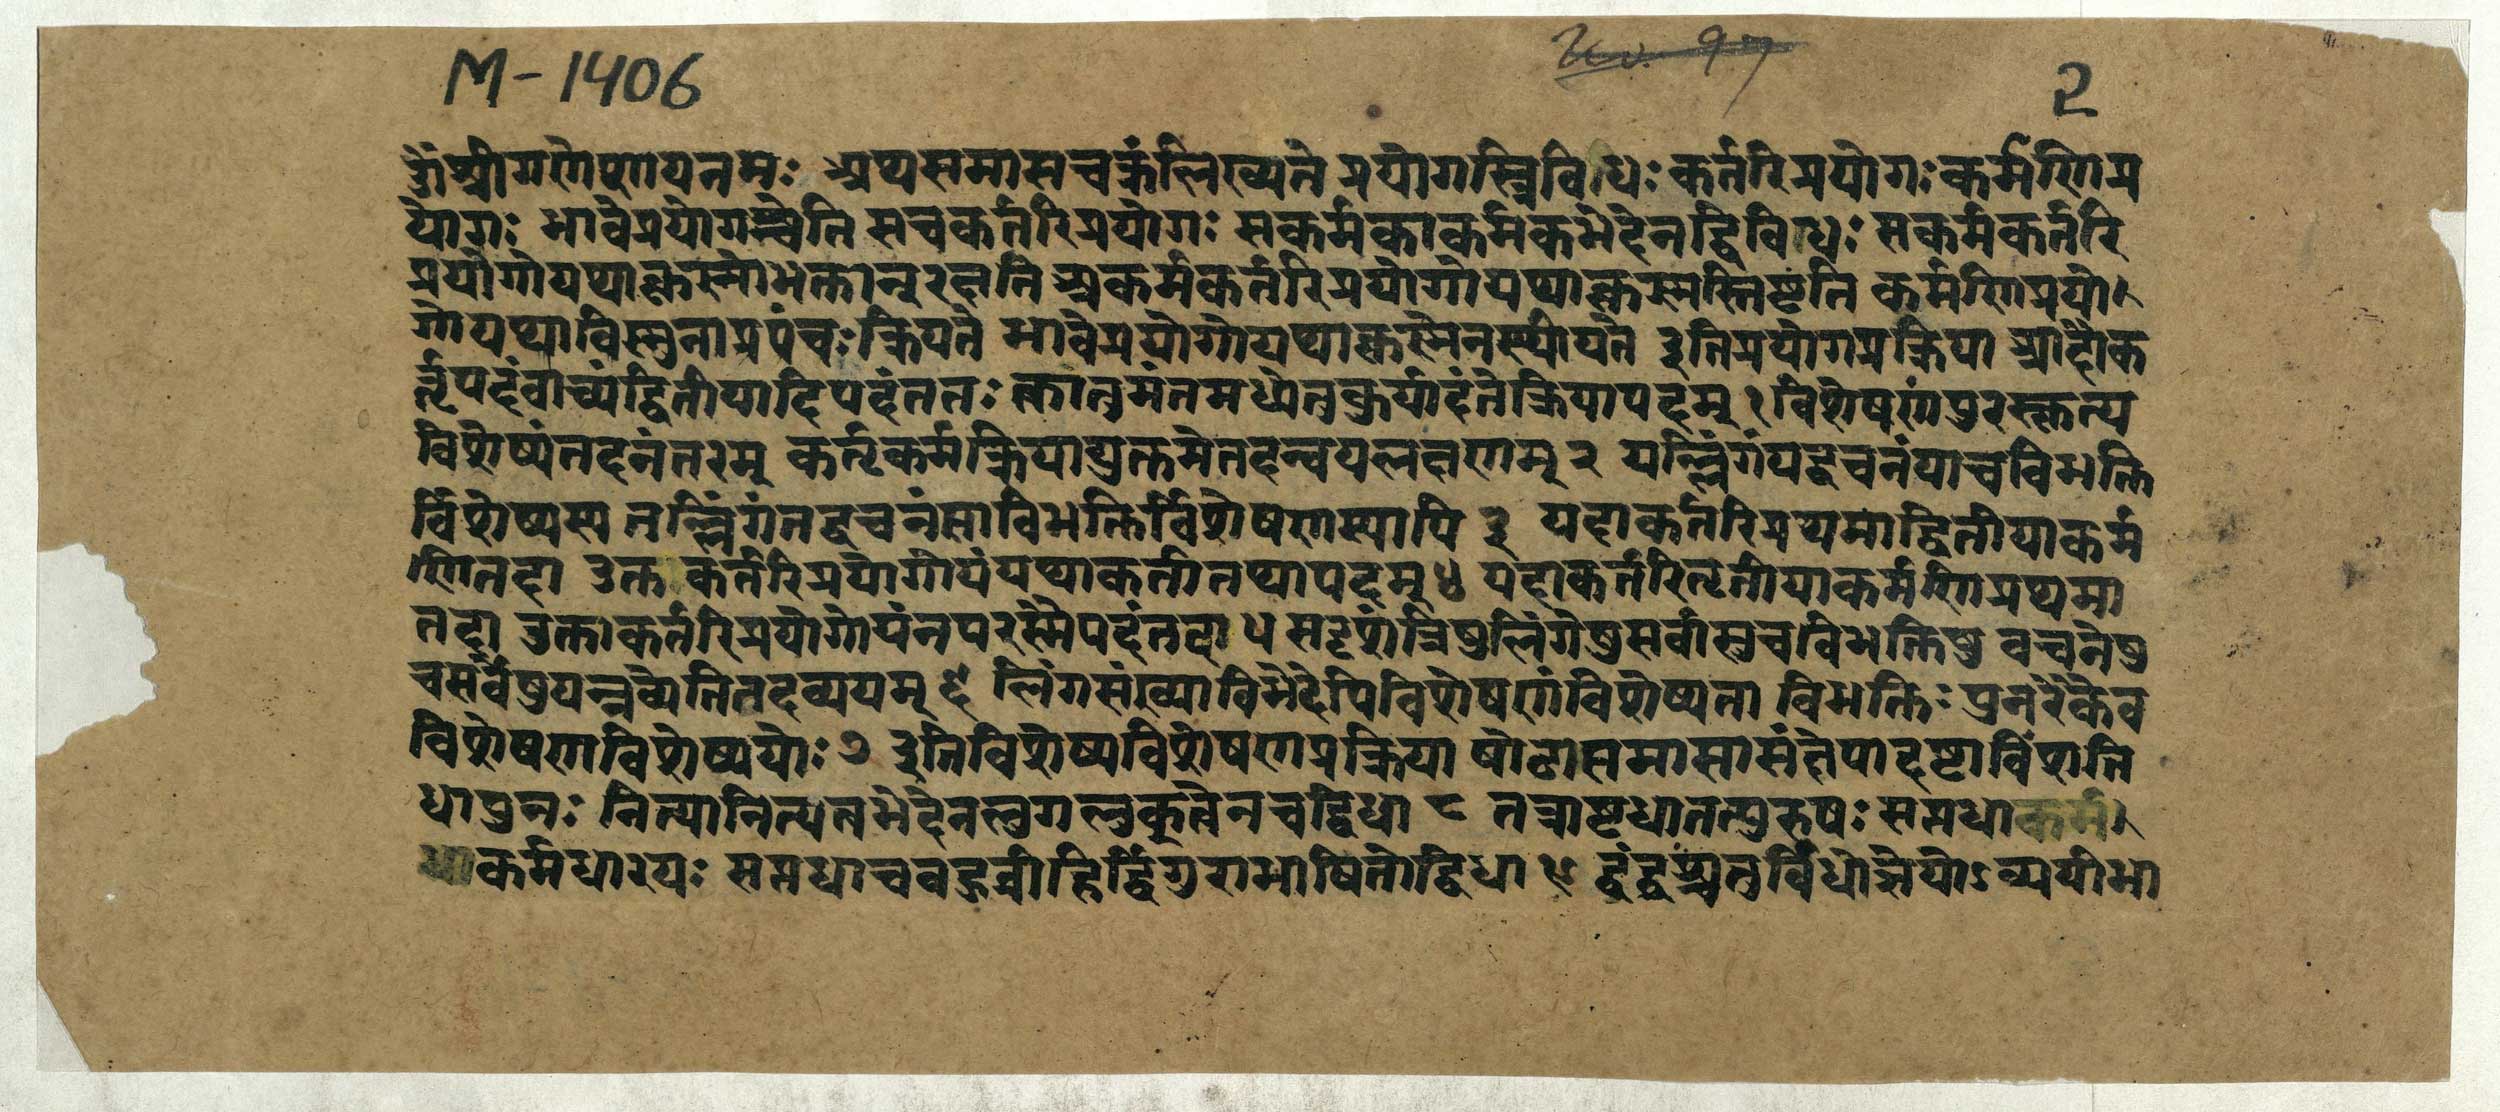 M-1406
२
ॐश्रीगणेशायनमः अथसमासचक्रंलिख्यते प्रयोगस्त्रिविधः कर्तरिप्रयोगः कर्मणिप्र
योगः भावेप्रयोगश्चेति सचकर्तरिप्रयोगः सकर्मकाकर्मकभेदेनद्विविधः सकर्मकर्तरि
प्रयोगोयथाकृष्णोभक्तानुरक्षति अकर्मकर्तरिप्रयोगोयथाकृष्णस्तिष्टंति कर्मणिप्रयो।
गोयथाविष्णुनाप्रपंचः क्रियते भावेप्रयोगोयथाकृष्णेनस्थीयते इतिप्रयोगप्रक्रिया आदौक
र्तृपदंवाच्यंद्वितीयादिपदंततः क्त्वातुमंतमध्येतुकुर्यादंतेक्रियापदम् १ विशेषणंपुरस्कृत्य
विशेष्यंतदनंतरम् कर्तृकर्मक्रियायुक्तमेतदन्वयलक्षणम् २ यल्लिंगंयद्वचनंयाचविभक्ति
र्विशेष्यस्य तल्लिंगंतद्वचनंसाविभक्तिर्विशेषणस्यापि ३ यदाकर्तरिप्रथमाद्वितीयाकर्म
णितदा उक्ताकर्तरिप्रयोगोयंयथाकर्तातथापदम् ४ यदाकर्तरितृतीयाकर्मणिप्रथमा
तदा उक्ताकर्तरिप्रयोगोयंनपरस्मैपदंतदा ५ सदृशंत्रिषुलिंगेषुसर्वासुचविभक्तिषु वचनेषु
चसर्वेषुयन्नव्येतितदव्ययम् ६ लिंगसंख्याविभेदेपिविशेषणंविशेष्यता विभक्तिः पुनरेकैव
विशेषणविशेष्ययोः ७ इतिविशेष्यविशेषणप्रक्रिया षोढासमासासंक्षेपादष्टाविंशति
धापुनः नित्यानित्यत्वभेदेनलुगलुक्त्वेनचद्विधा ८ तत्राष्टधातत्पुरुषः सप्तधाकर्म।
धाकर्मधारयः सप्तधाचबहुव्रीहिर्द्विगुराभाषितोद्विधा ९ द्वंद्वश्चतुर्विधोज्ञेयोऽव्ययीभा